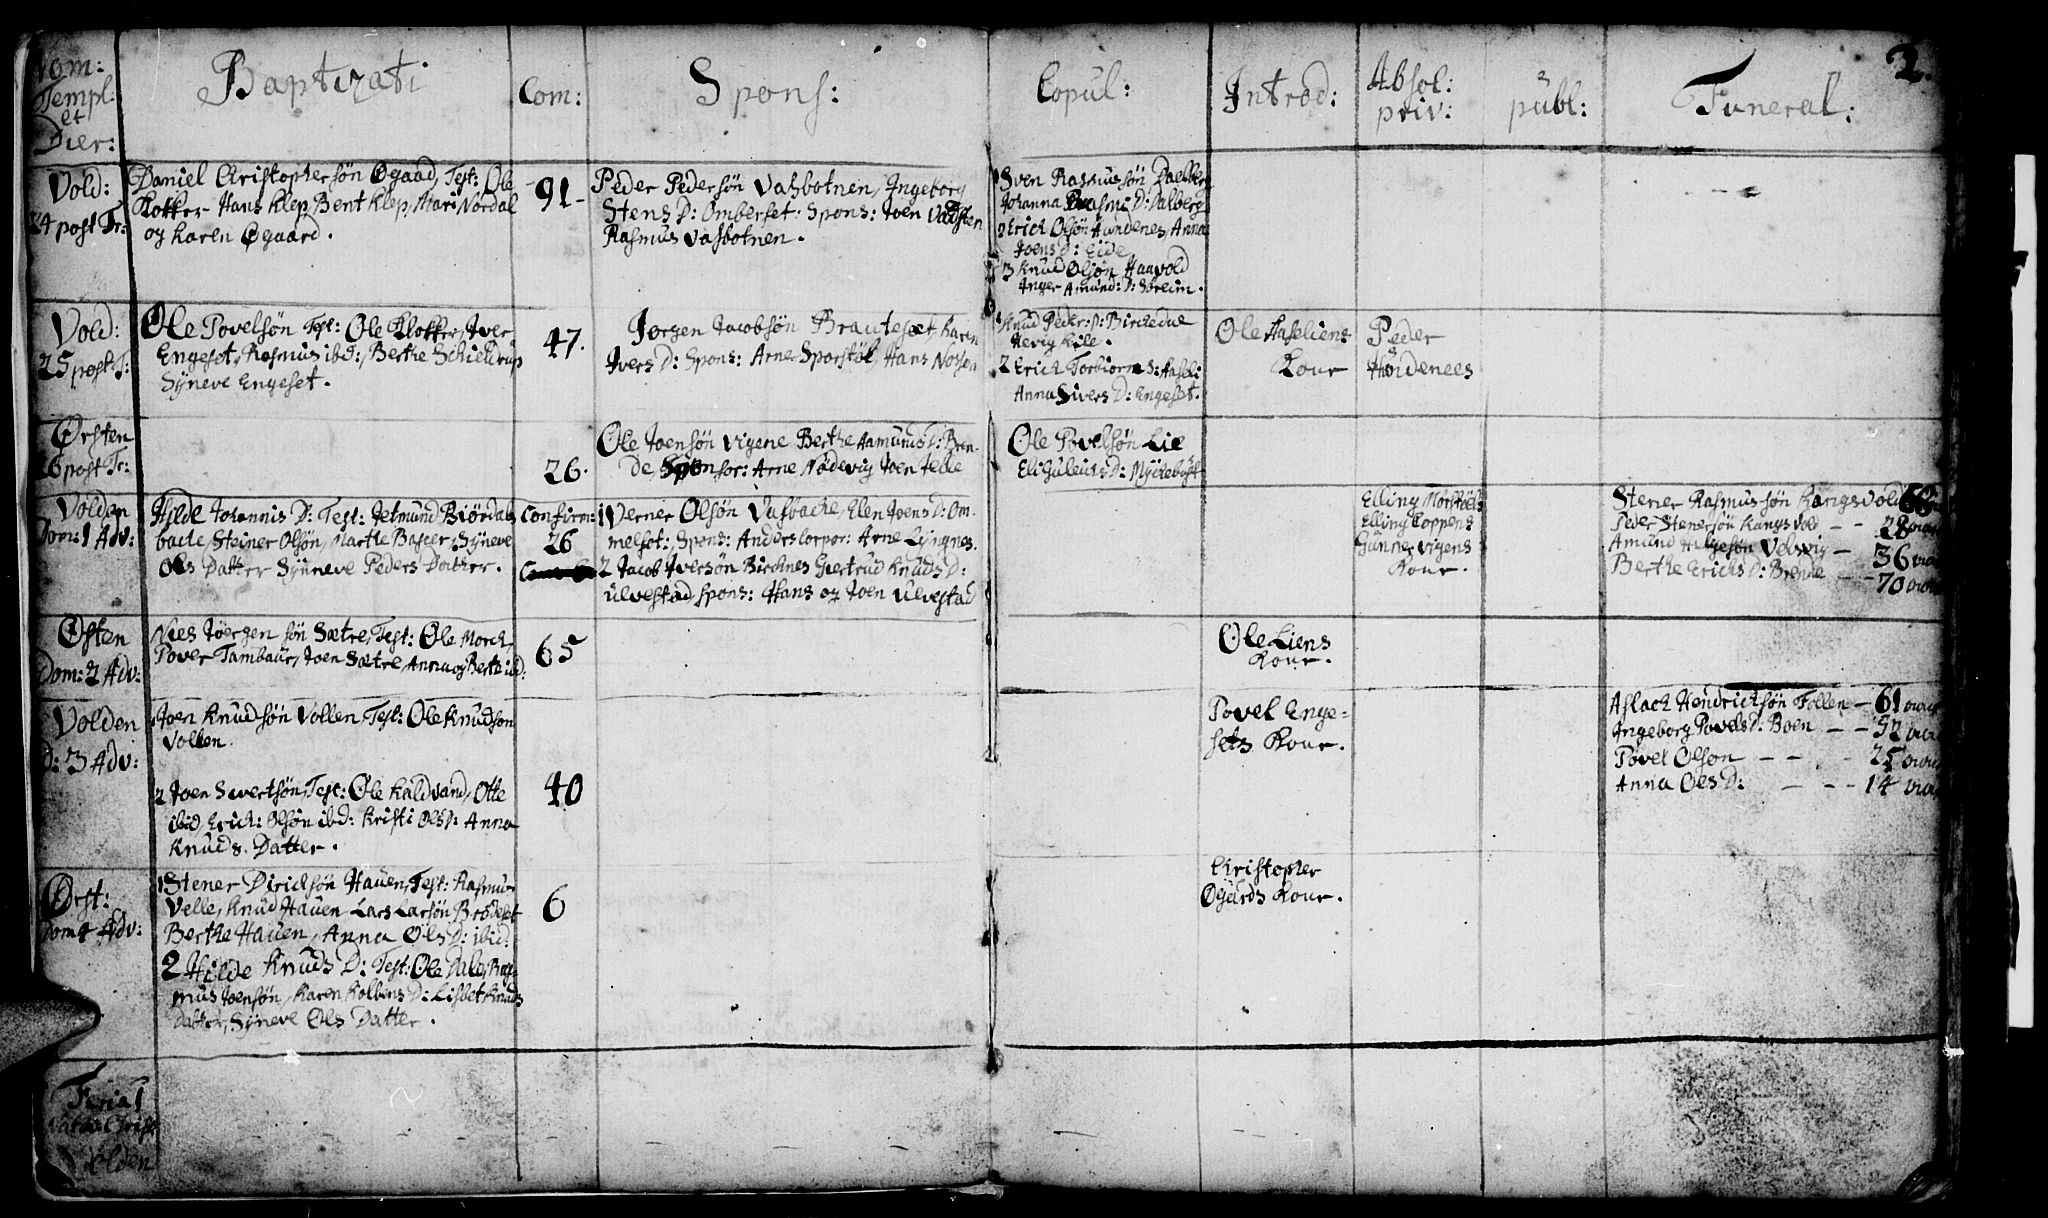 2.
Nom: Templ: et Dier:
Baptizati
Com:
Spons:
Copul:
Introd:
Absol: priv:
publ:
Funeral:
Vold:
24 post Tr:
Daniel Christophersøn Øgaard, Test: Ole
Klokker Hans Klep, Bent Klep, Mari Nordal
og Karen Øgaard.
91-
Peder Pedersøn Vasbotnen, Ingeborg
Stens D: Omberset. Spons: Joen Vadsten
Rasmus Vasbotnen.
1 Sven Rasmussøn Dalberg
Johanna Rasmi D: Dalberg
2 Erich Olsøn Hundenes, Anna
Joens D: Eide
3 Knud Olsøn Haavold
Inger Amund: D: Søreim.
Vold:
25 post T:
Ole Povelsøn Test: Ole Klokker, Iver
Engeset, Rasmus ibd:, Berthe Schieldrup
Syneve Engeset.
47.
Jørgen Jacobsøn Brauteset, Karen
Ivers D: Spons: Arne Sporstøl, Hans
1 Knud Peder: S: Birchedal
Hevig Kile.
2 Erich Torbiorn S: Aaseli
Anna Sivers D: Engeset.
Ole Aaseliens
Kone
Peder
Hundenees
Ørsten
26 post Tr:
26.
Ole Joensøn Vigene Berthe Aamunds D: Bren-
de Sponsor: Arne Nødevig Joen Jelle
Ole Povelsøn Lie
Eli Guleichs D: Myckebøst
Volden
Dom: 1 Adv:
Hilde Johannis D: Test: Jetmund Biørdals
bache, Steiner Olsøn, Marthe Bascer, Syneve
Ols Datter Syneve Peders Datter.
Confirm:
26
1 Verner Olsøn Vasbache, Elen Joens D: Om-
melset:, Spons: Anders Corpor: Arne Lyngnes.
2 Jacob Iversøn Birchnes Giertrud Knuds D:
Ulvestad spons: Hans og Joen Ulvestad
Elling Morskáls
Elling Coppens
Gunner Vigens
Kone.
Stener Rasmussøn Kangsvold
Peder Stenersøn Kangsvold - - 28
Amund Helgesøn Velsvig - 36
Berthe Erichs D: Brende - - 70
Østen
Dom: 2 Adv:
Nies Jørgensøn Sætre, Test: Ole Morch,
Povel Tambaur, Joen Sætre, Anna og Berte ibd:
65
Ole Liens
Kone.
Volden
D: 3 Adv:
1 Joen Knudsøn Vollen Test: Ole Knudsøn
Vollen.
2 Joen Sivertsøn, Test: Ole Kaldvand, Otte
ibid Erich: Olsøn ibd: Kristi Ols D: Anna
Knuds. Datter.
40
Povel Enge-
sets Kone.
Aslach Hendrichsøn Follen - 61
Ingeborg Povels D: Boen - - 52
Povel Olsøn - - - 25
Anna Ols D: - - - 14
Ørst:
Dom 4 Adv:
1 Stener Dirichsøn Hauen, Test: Rasmus
Velle, Knud Hauen Lars Larsøn Brødeset
Berthe Hauen, Anna Ols D: ibid.
2 Hilde Knuds D: Test: Ole Dale, Ras-
mus Joensøn, Karen Kolbens D: Lisbet Knuds
datter, Syneve Ols Datter.
6
Christopher
Øgards Kone.
Feria 1
Nativ: Christ
Volden